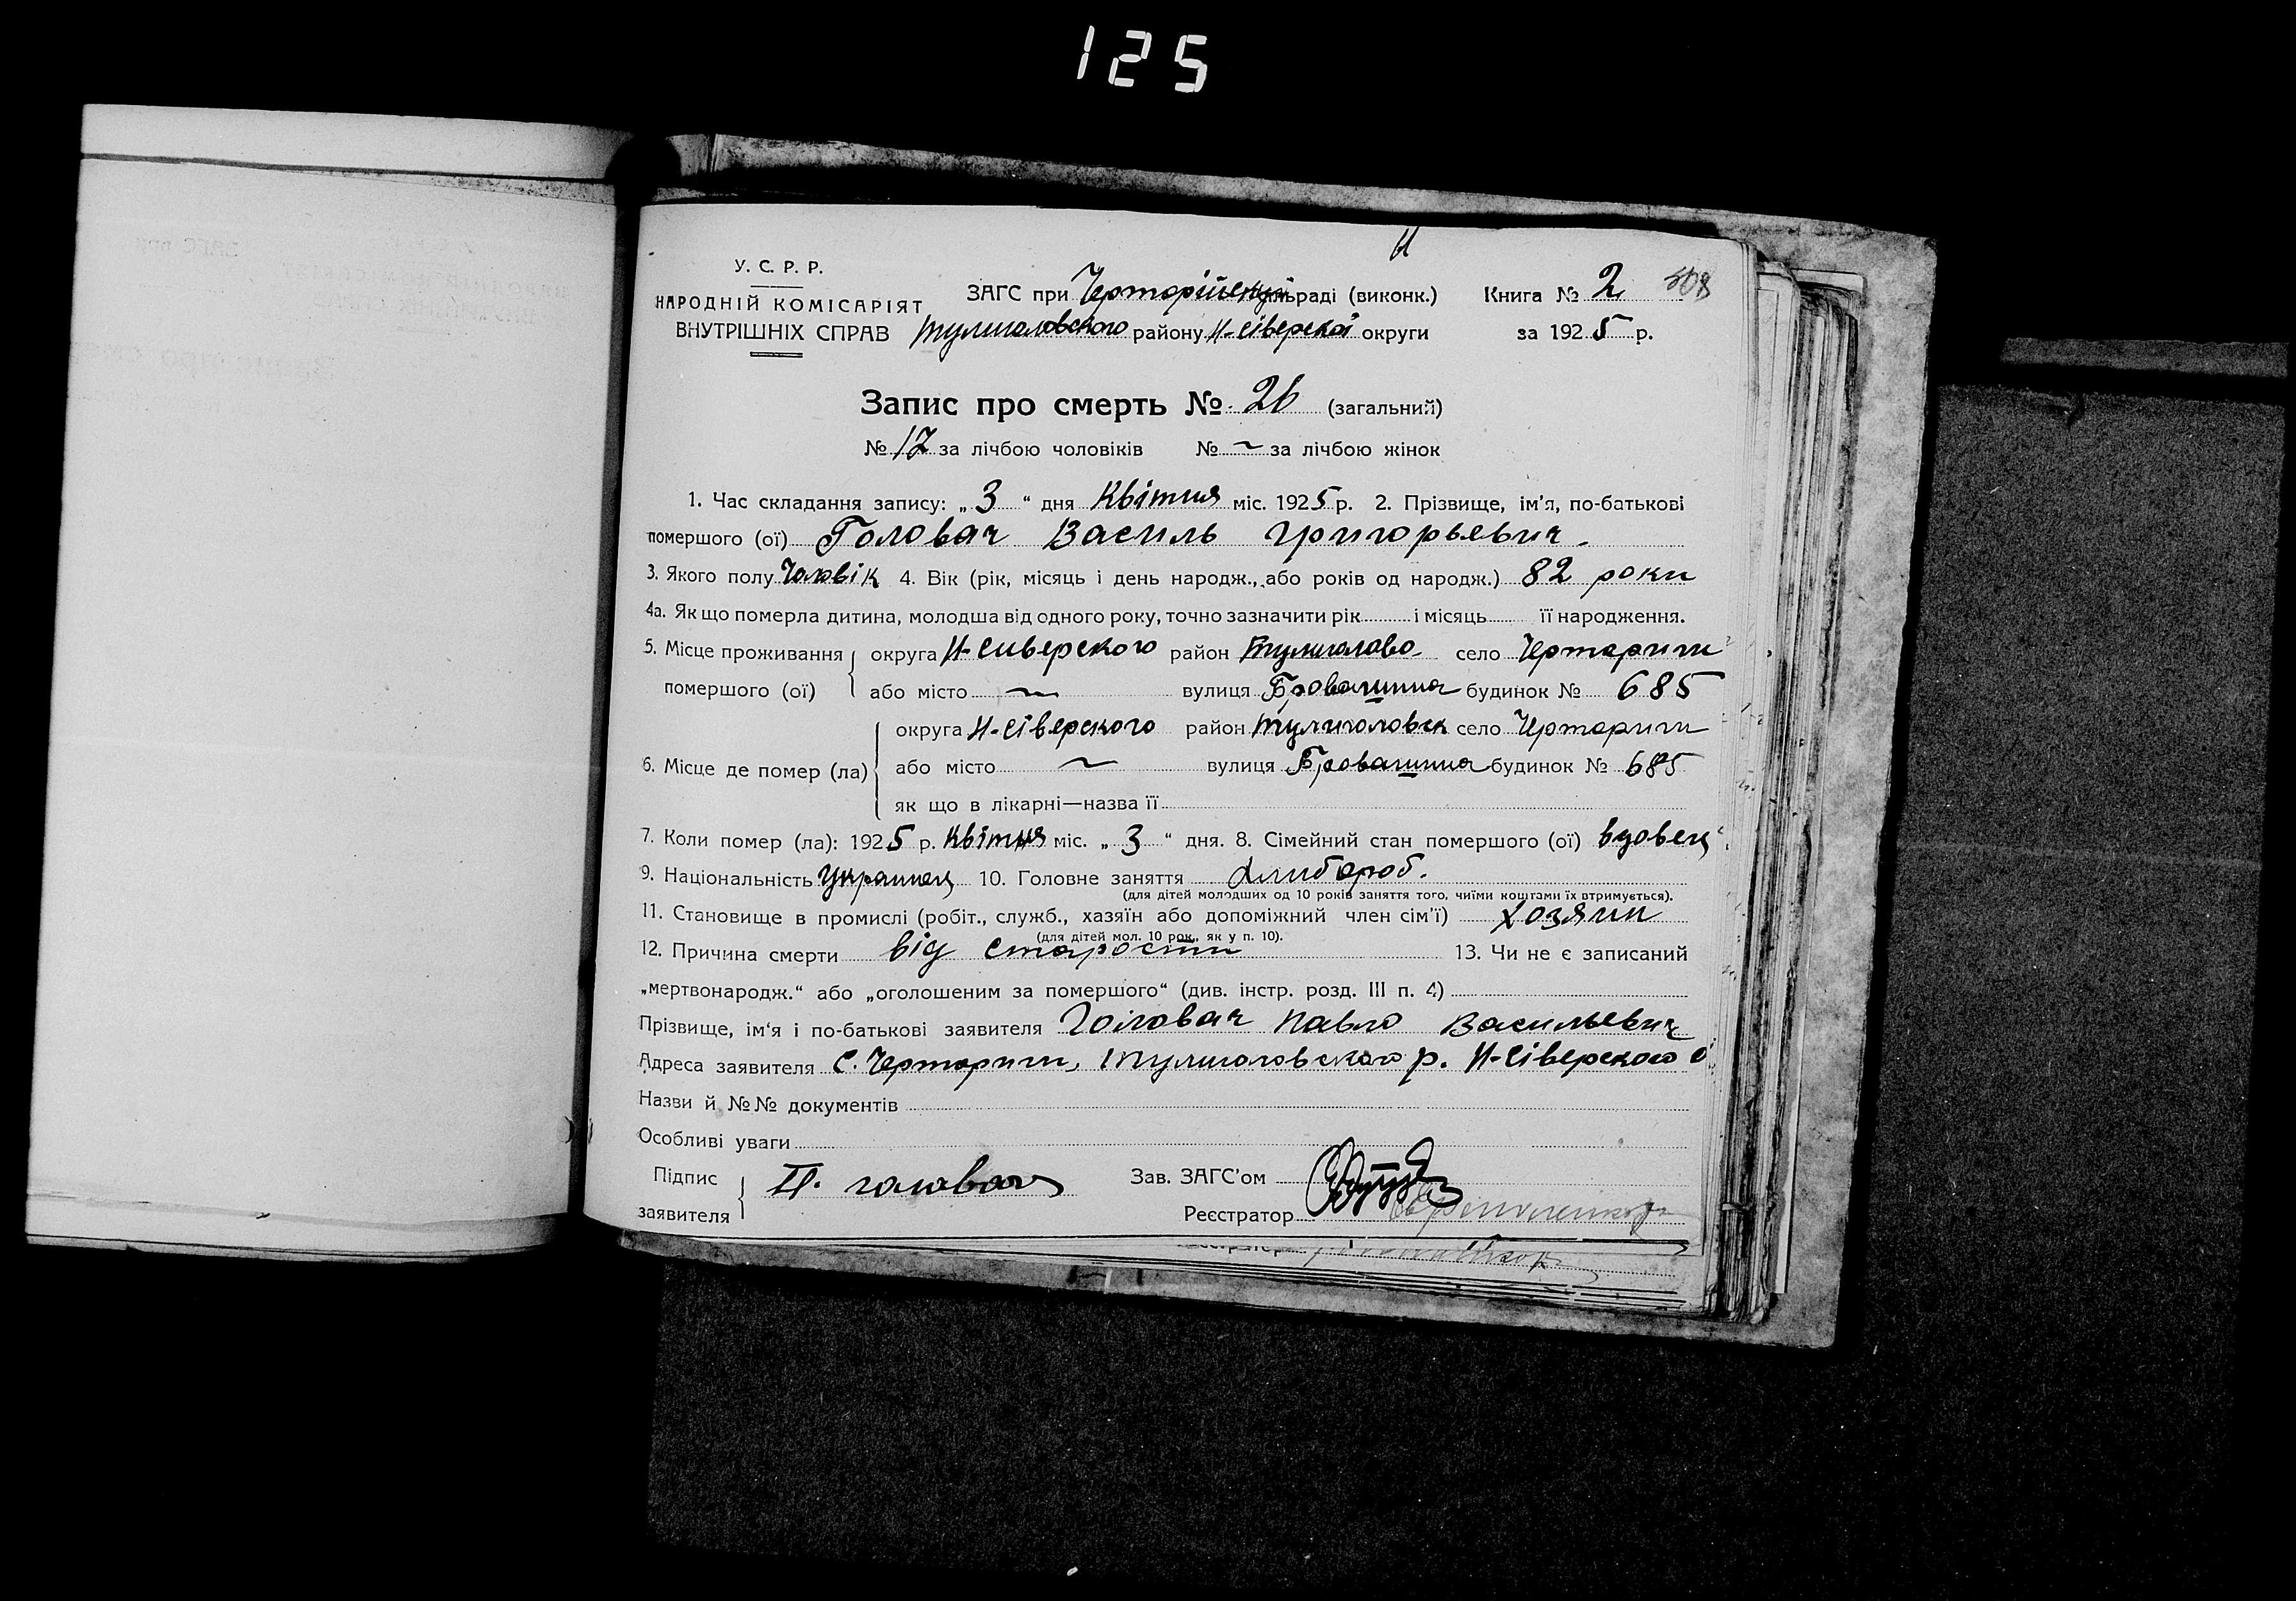 125
У. С. Р. Р.
НАРОДНІЙ КОМІСАРІЯТ
ВНУТРІШНІХ СПРАВ
ЗАГС при Черторійській сільраді (виконк.)
Тулиголовского району Н-Сіверскої округи
Книга № 2 308
за 1925 р.
Запис про смерть № 26 (загальний)
№ 17 за лічбою чоловіків № ~ за лічбою жінок
1. Час складання запису: „3“ дня Квітня міс. 1925 р. 2. Прізвище, ім'я, по-батькові
помершого (ої) Головач Василь Григорьевич.
3. Якого полу Чоловік 4. Вік (рік, місяць і день народж., або років од народж.) 82 роки
4а. Як що померла дитина, молодша від одного року, точно зазначити рік і місяць її народження.
5. Місце проживання помершого (ої) округа Н-Сиверского район Тулиголово. село Чертариги
або місто ~ вулиця будинок № 685
6. Місце де помер (ла) округа Н-Сіверского район Тулиголовск село Чертариги
або місто ~ вулиця будинок № 685
як що в лікарні—назва її
7. Коли помер (ла): 1925 р. Квітня міс. „3“ дня. 8. Сімейний стан помершого (ої) вдовець
9. Національність Украинец 10. Головне заняття Хлибороб.
(для дітей молодших од 10 років заняття того, чиїми коштами їх втримується).
11. Становище в промислі (робіт., служб., хазяїн або допоміжний член сім'ї) хозяин
(для дітей мол. 10 рок., як у п. 10).
12. Причина смерти від старости 13. Чи не є записаний
„мертвонародж.“ або „оголошеним за помершого“ (див. інстр. розд. III п. 4)
Прізвище, ім'я і по-батькові заявителя Головач Павло Васильевич
Адреса заявителя С. Чертариги, Тулиголовского р. Н-Сіверского о
Назви й №№ документів
Особливі уваги
Підпис заявителя П. Головач
Зав. ЗАГС'ом
Реєстратор